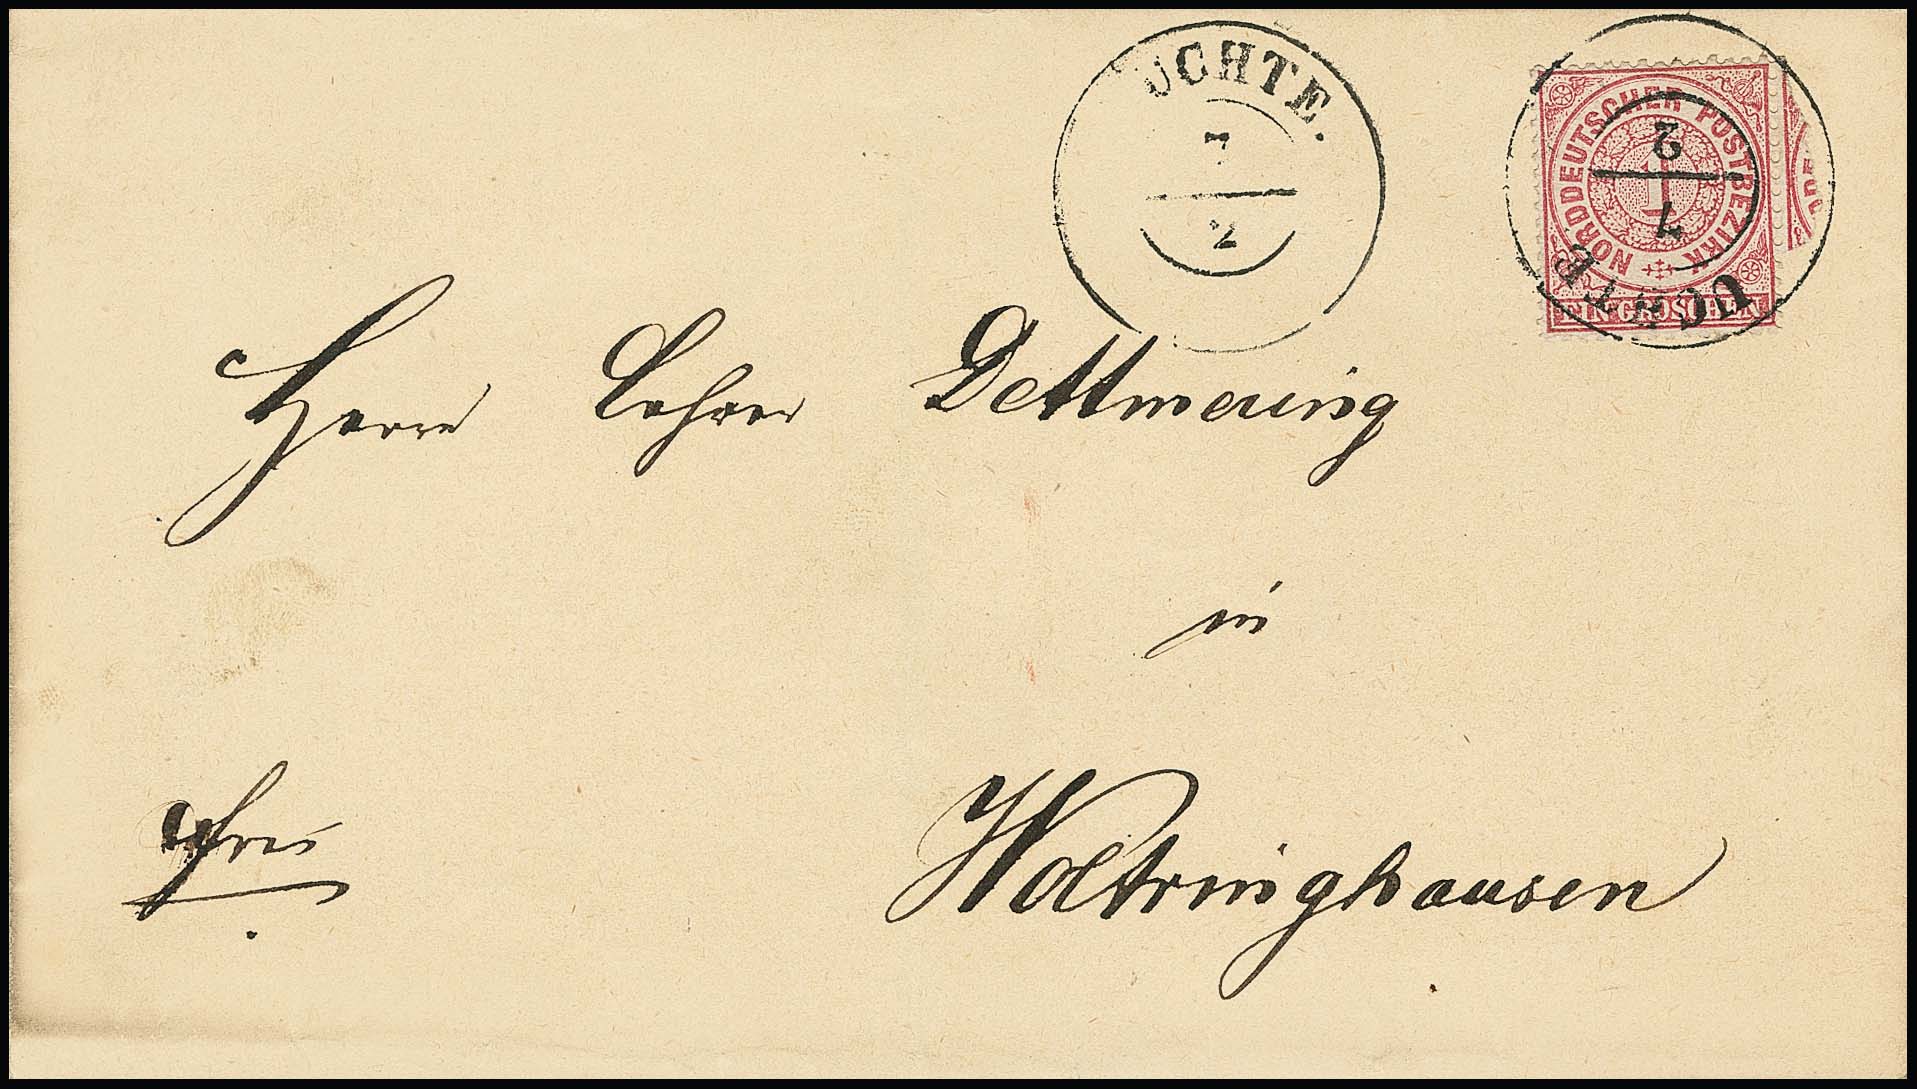 UCHTE.
7
2
NORDDEUTSCHER POSTBEZIRK
1
EIN GROSCHEN
UCHTE
7
2
Herrn Lehrer Dettmering
in
frei
Woltringhausen